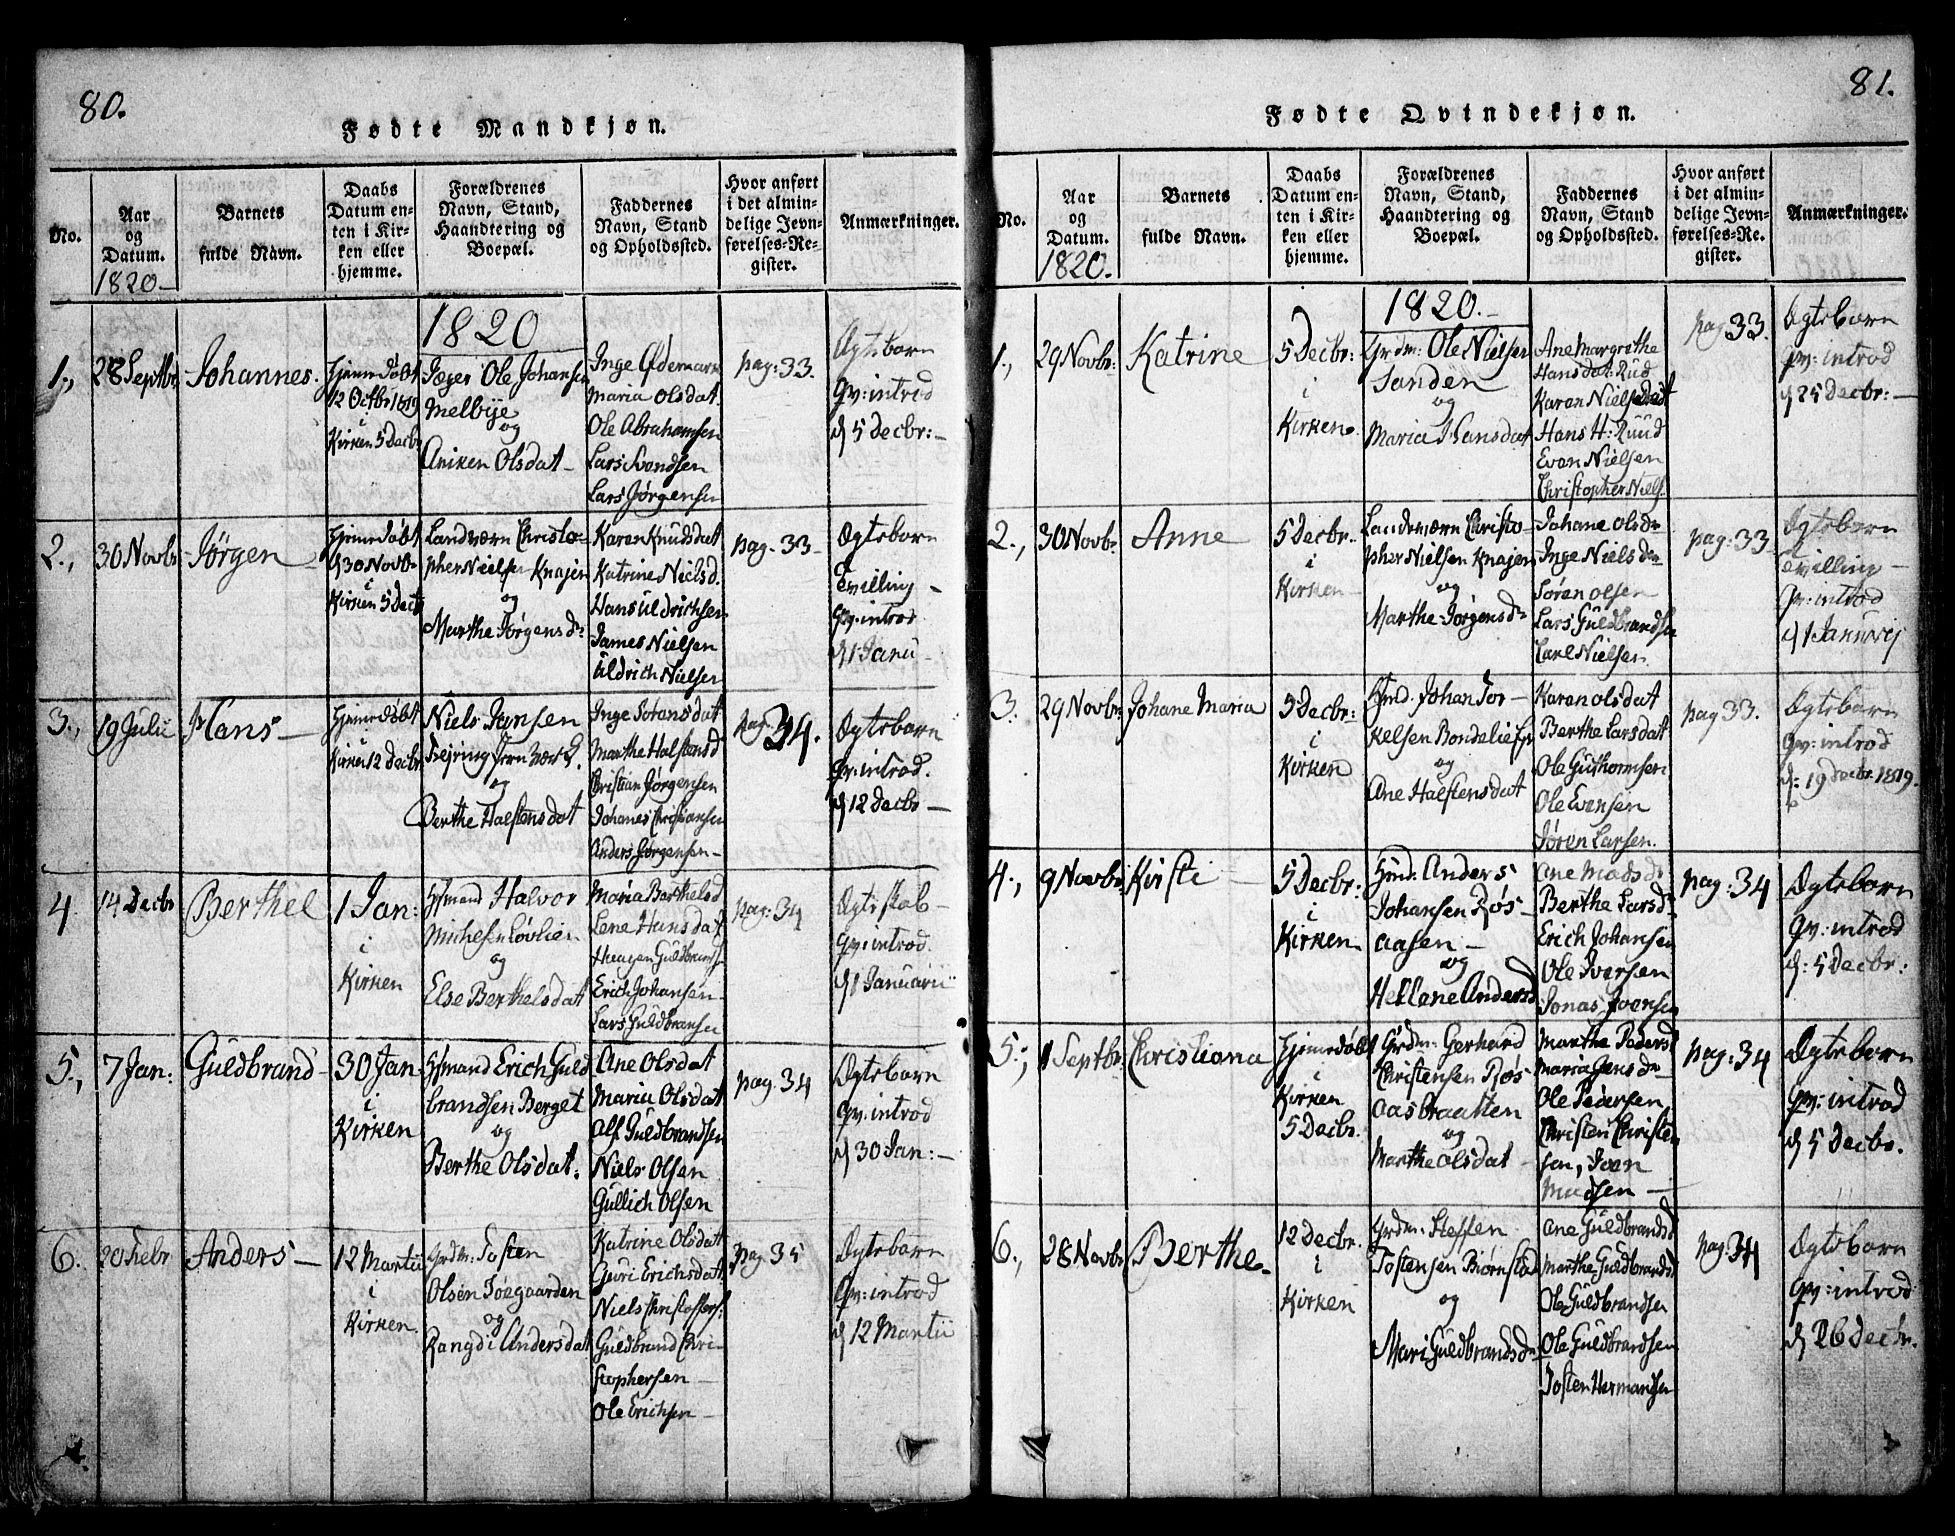 80.
Fødte Mandkjøn.
No.
Aar
og
Datum.
1820
Barnets
fulde Navn.
Daabs
Datum en-
ten i Kir-
ken eller
hjemme.
Forældrenes
Navn, Stand,
Haandtering og
Boepæl.
Faddernes
Navn, Stand
og Opholdssted.
Hvor anført
i det almin-
delige Jevn-
førelses-Re-
gister.
Anmærkninger.
1820
1.,
28 Septbr
Johannes.
Hjemdøbt
12 Octbr 1819
i
Kirken 5 Decbr
Jæger Ole Johansen
Melbye
og
Aniken Olsdat
Inge Ødemark
Maria Olsdat
Ole Abrahamsen
Lars Svendsen
Lars Jørgensen
pag: 33.
Ægtebarn
qv: introd
d 5 Decbr:
2.,
30 Novbr
Jørgen
Hjemdøbt
d 30 Novb
i
Kirken 5 Decb
Landværn Christo-
pher Nielsen Knajen
og
Marthe Jørgensd
Karen Knudsdat
Katrine Nielsd.
Hans Uldrichsen
James Nielsen
Uldrich Nielsen
pag. 33
Ægtebarn
Tvilling
qv: introd
d 1 Janu
3.,
19 Julii
Hans
Hjemdøbt
Kirken 12 Decbr
Niels Jansen
Fejring Jernværk
og
Berthe Halstensdat
Inge Sørensdat
Marthe Halstensd
Christian Jørgensen
Johanes Christiansen
Anders Jørgensen
pag: 34.
Ægtebarn
qv: introd.
d 12 Decbr
4
14 Decbr
Berthel
1 Jan:
i
Kirken
Hsmand Halvor
Michelsen Løvlien
og
Else Berthelsdat
Maria Berthelsd
Lene Hansdat
Guldbrands
Erich Johansen
Lars Guldbransen
pag: 34
Ægteskab
qv: introd.
d 1 Januarii
5.,
7 Jan:
Guldbrand
30 Jan
i
Kirken
Hsmand Erich Guld
brandsen Berget
og
Berthe Olsdat.
Ane Olsdat
Maria Olsdat
Alf Guldbrandsen
Niels Olsen
Gullich Olsen
pag: 34
Ægtebarn
qv: introd
d 30 Jan:
6.
20 Febr
Anders
12 Martii
i
Kirken
Grdm: Tosten
Olsen Tøegaarden
og
Rangdi Andersdat
Katrine Olsdat
Guri Erichsdat
Niels Christoffers
Guldbrand Chri-
stophersen
Ole Erichsen
pag: 35
Ægtebarn
qv: introd
d 12 Martii
81.
Fødte Qvindekjøn.
No.
Aar
og
Datum.
1820.
Barnets
fulde Navn.
Daabs
Datum en-
ten i Kir-
ken eller
hjemme.
Forældrenes
Navn, Stand,
Haandtering og
Boepæl.
Faddernes
Navn, Stand
og Opholdssted.
Hvor anført
i det almin-
delige Jevn-
førelses-Re-
gister.
Anmærkninger.
1820.
1.,
29 Novbr:
Katrine
5 Decbr:
i
Kirken
Grdm: Ole Nielsen
Sanden
og
Maria Hansdat
Ane Margrethe
Hansdat: Rud
Karen Nielsdat
Hans H: Ruud
Even Nielsen
Christopher Niels.
pag: 33.
Ægtebarn
qv: introd
d 25 Decbr:
2.,
30 Novbr
Anne
5 Decbr.
i
Kirken
Landsværn Christo-
pher Nielsen Knajen
og
Marthe Jørgensd
Johane Olsd
Inge Nielsd
Søren Olsen
Lars Guldbrandsen
Carl Nielsen
pag: 33
Ægtebarn
Tvilling
qv: introd
d 1 Januarij
3.
29 Novbr
Johane Maria
5 Decbr:
i
Kirken
Hsmd. Johan Tor-
kelsen Bondelie
og
Ane Halstensdat
Karen Olsdat
Berthe Larsdat
Ole Guthormsen
Ole Evensen
Jøren Larsen.
pag 33.
Ægtebarn
qv: introd
d: 19 Decbr. 1819.
4.,
9 Novbr
Kirsti
5 Decbr:
i
Kirken
Hsmd: Anders
Johansen Røs-
aasen
og
Hellene Andersd
Ane Madsd
Berthe Larsd
Erich Johansen
Ole Iversen
Jonas Iversen
pag: 34
Ægtebarn
qv: introd
d: 5 Decbr:
5.,
1 Septbr
Christiana
Hjemdøbt
i
Kirken
5 Decbr.
Grdm: Gerhard
Christensen Røs
aasbraatten
og
Marthe Olsdat
Marthe Peders
Maria Jensd
Ole Pedersen
Christen Christen
sen, Iver
Madsen
pag: 34
Ægtebarn
qv: introd
d 5 Decbr.
6.,
28 Novbr
Berthe
12 Decbr.
i
Kirken
Grdm: Steffen
Tostensen Bjørnstad
og
Mari Guldbrandsd
Ane Guldbrandsd
Marthe Guldbrandsd
Ole Guldbrandsen
Ole Guldbrandsen
Tosten Hermandsen
pag: 34
Ægtebarn
qv: introd
d 26 Decbr.